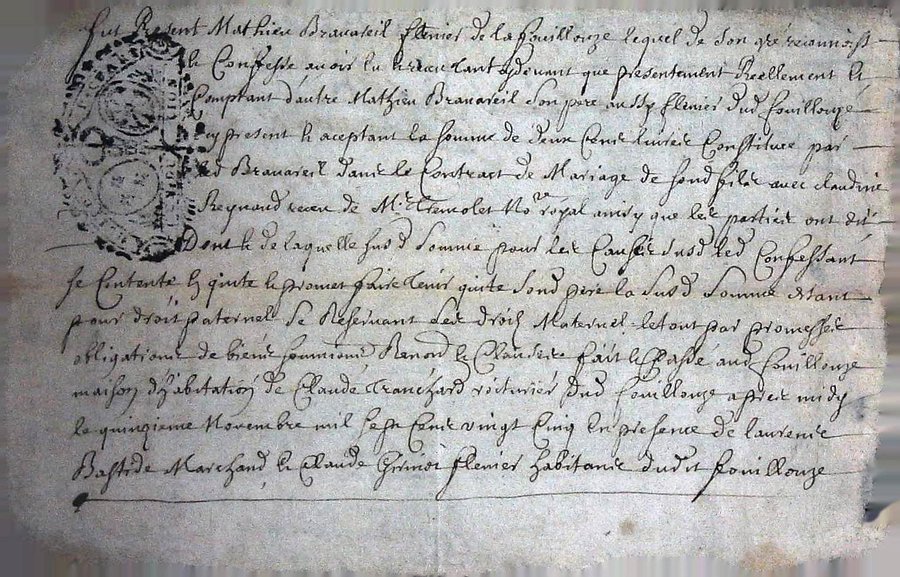 fut Present Mathieu Bravareil flenier de la fouillouze lequel de son gré reconnoist
& Confesse avoir eu & receu tant cydevant que presentement Reellement &
Comptant d'autre Mathieu Bravareil son pere aussy flenier dud fouillouze
cy present & aceptant la somme de deux Cens livres Constituée par
led Bravareil dans le Contract de Mariage de sond fils avec claudine
Reynaud receu de Mr. Tremolet Nore royal ainsy que les parties ont dit
Dont & de laquelle susd somme pour les Causes susd led Confessant
se Contente & quite & promet faire tenir quite sond pere la susd somme estant
pour droit paternel se Reservant ses droits Maternel le tout par promesses
obligations de biens soumions Renons & Clauses fait & Passé aud fouillouze
maison d'habitation de Claude Tranchard voiturier dud fouillouze apres midy
le quinzieme Novembre mil sept Cens vingt Cinq En presence de laurens
Bastide Marchand & Claude flenier habitans dudit fouillouze